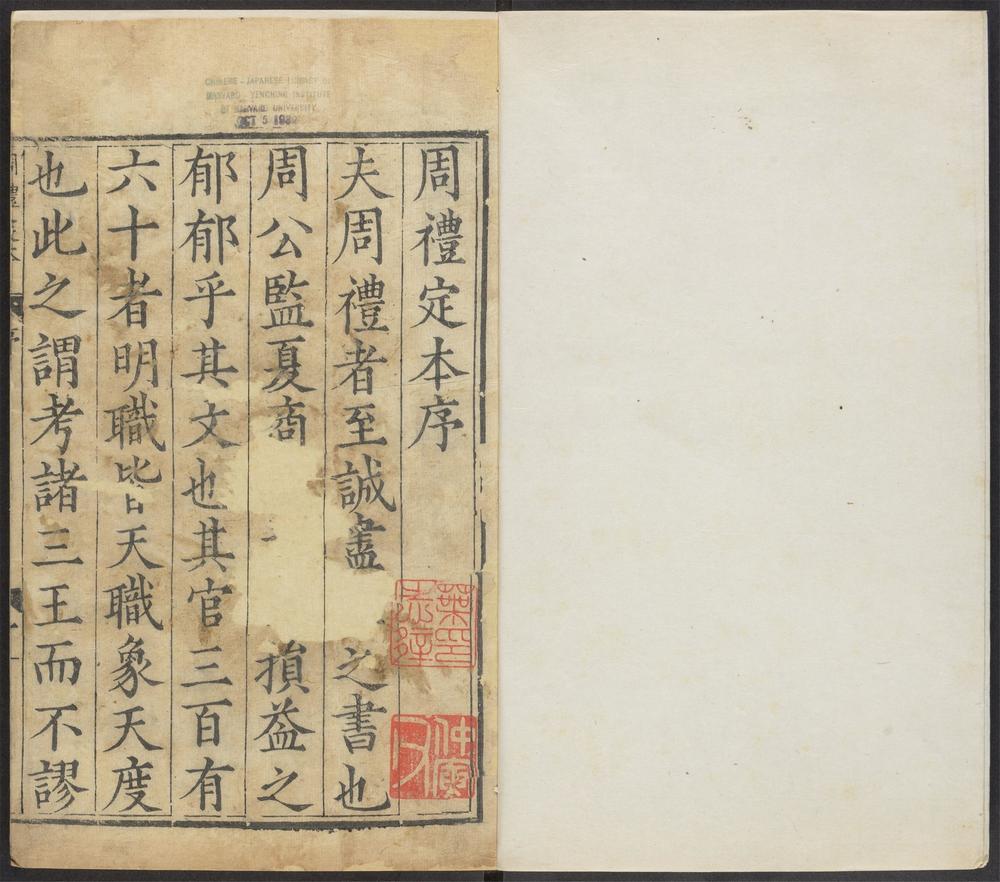 周禮定本序
夫周禮者至誠盡之書也
周公監夏商損益之
郁郁乎其文也其官三百有
六十者明職皆天職象天度
也此之謂考諸三王而不謬
CHINESE - JAPANESE LIBRARY OF
HARVARD - YENCHING INSTITUTE
AT HARVARD UNIVERSITY
OCT 5 19
序